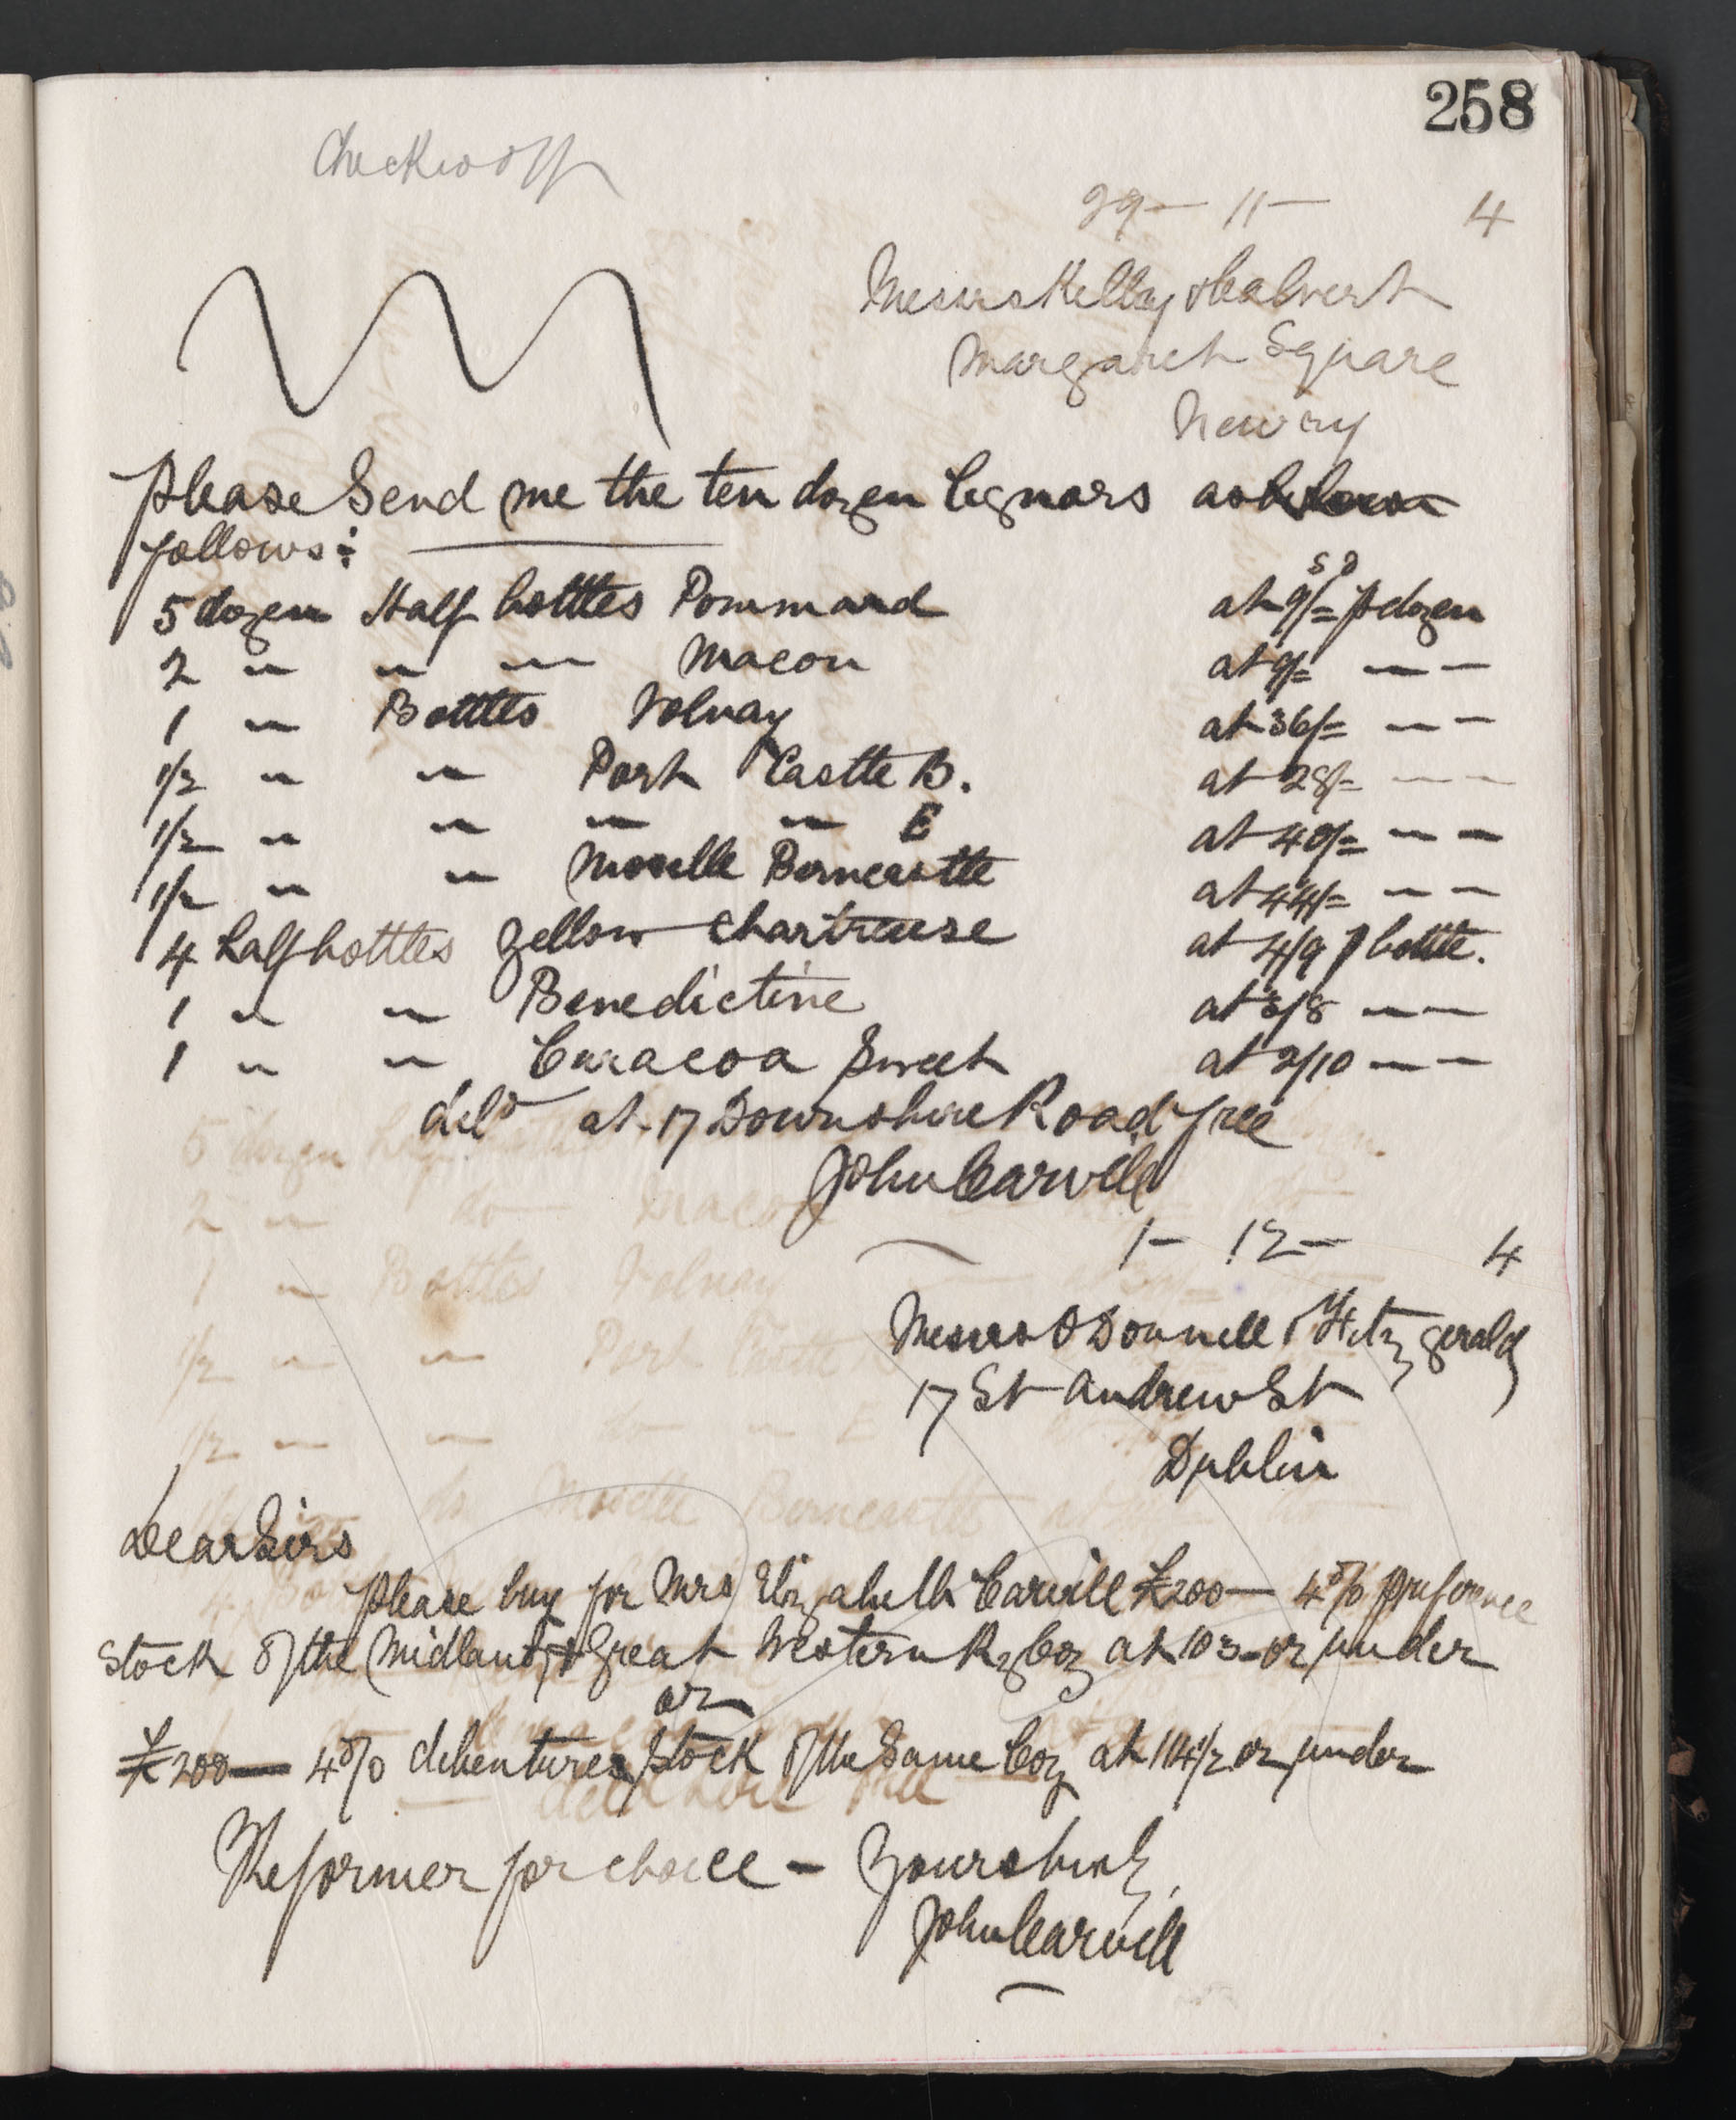 258
29 - 11 - 4
Messrs Kelly & Calvert
Margaret Square
Newry
Please Send me the ten dozen as
follows:
s d
5 dozen Half bottles Pommard at 9/= p dozen
2 " " " Macon at 9/= " "
1 " Bottles Volnay at 36/= " "
1/2 " " Port Castle B. at 28/- " "
1/2 " " " " E at 40/= " "
1/2 " " Moselle Berncastle at 44/= " "
4 half bottles Yellow Chartreuse at 4/9 p bottle.
1 " " Benedictine at 3/8 " "
1 " " Curacoa Sweet at 2/10 " "
deld at 17 Downshire Road free
John Carvill
1 - 12 - 4
Messrs O Donnell & Fitzgerald
17 St Andrew St
Dublin
Dear Sirs
Please buy for Mrs Elizabeth Carvill £200 - 4% preference
stock of the Midland & Great Western Ry Coy at 103 or under
or
£200 - 4% debentures stock of the Same Coy at 114 1/2 or under
The former for choice - Yours truly,
John Carvill